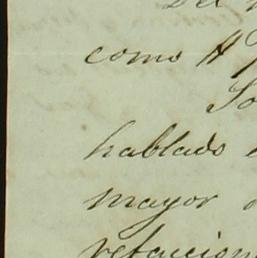 Del
como A
So
hablado
mayor
refaccion